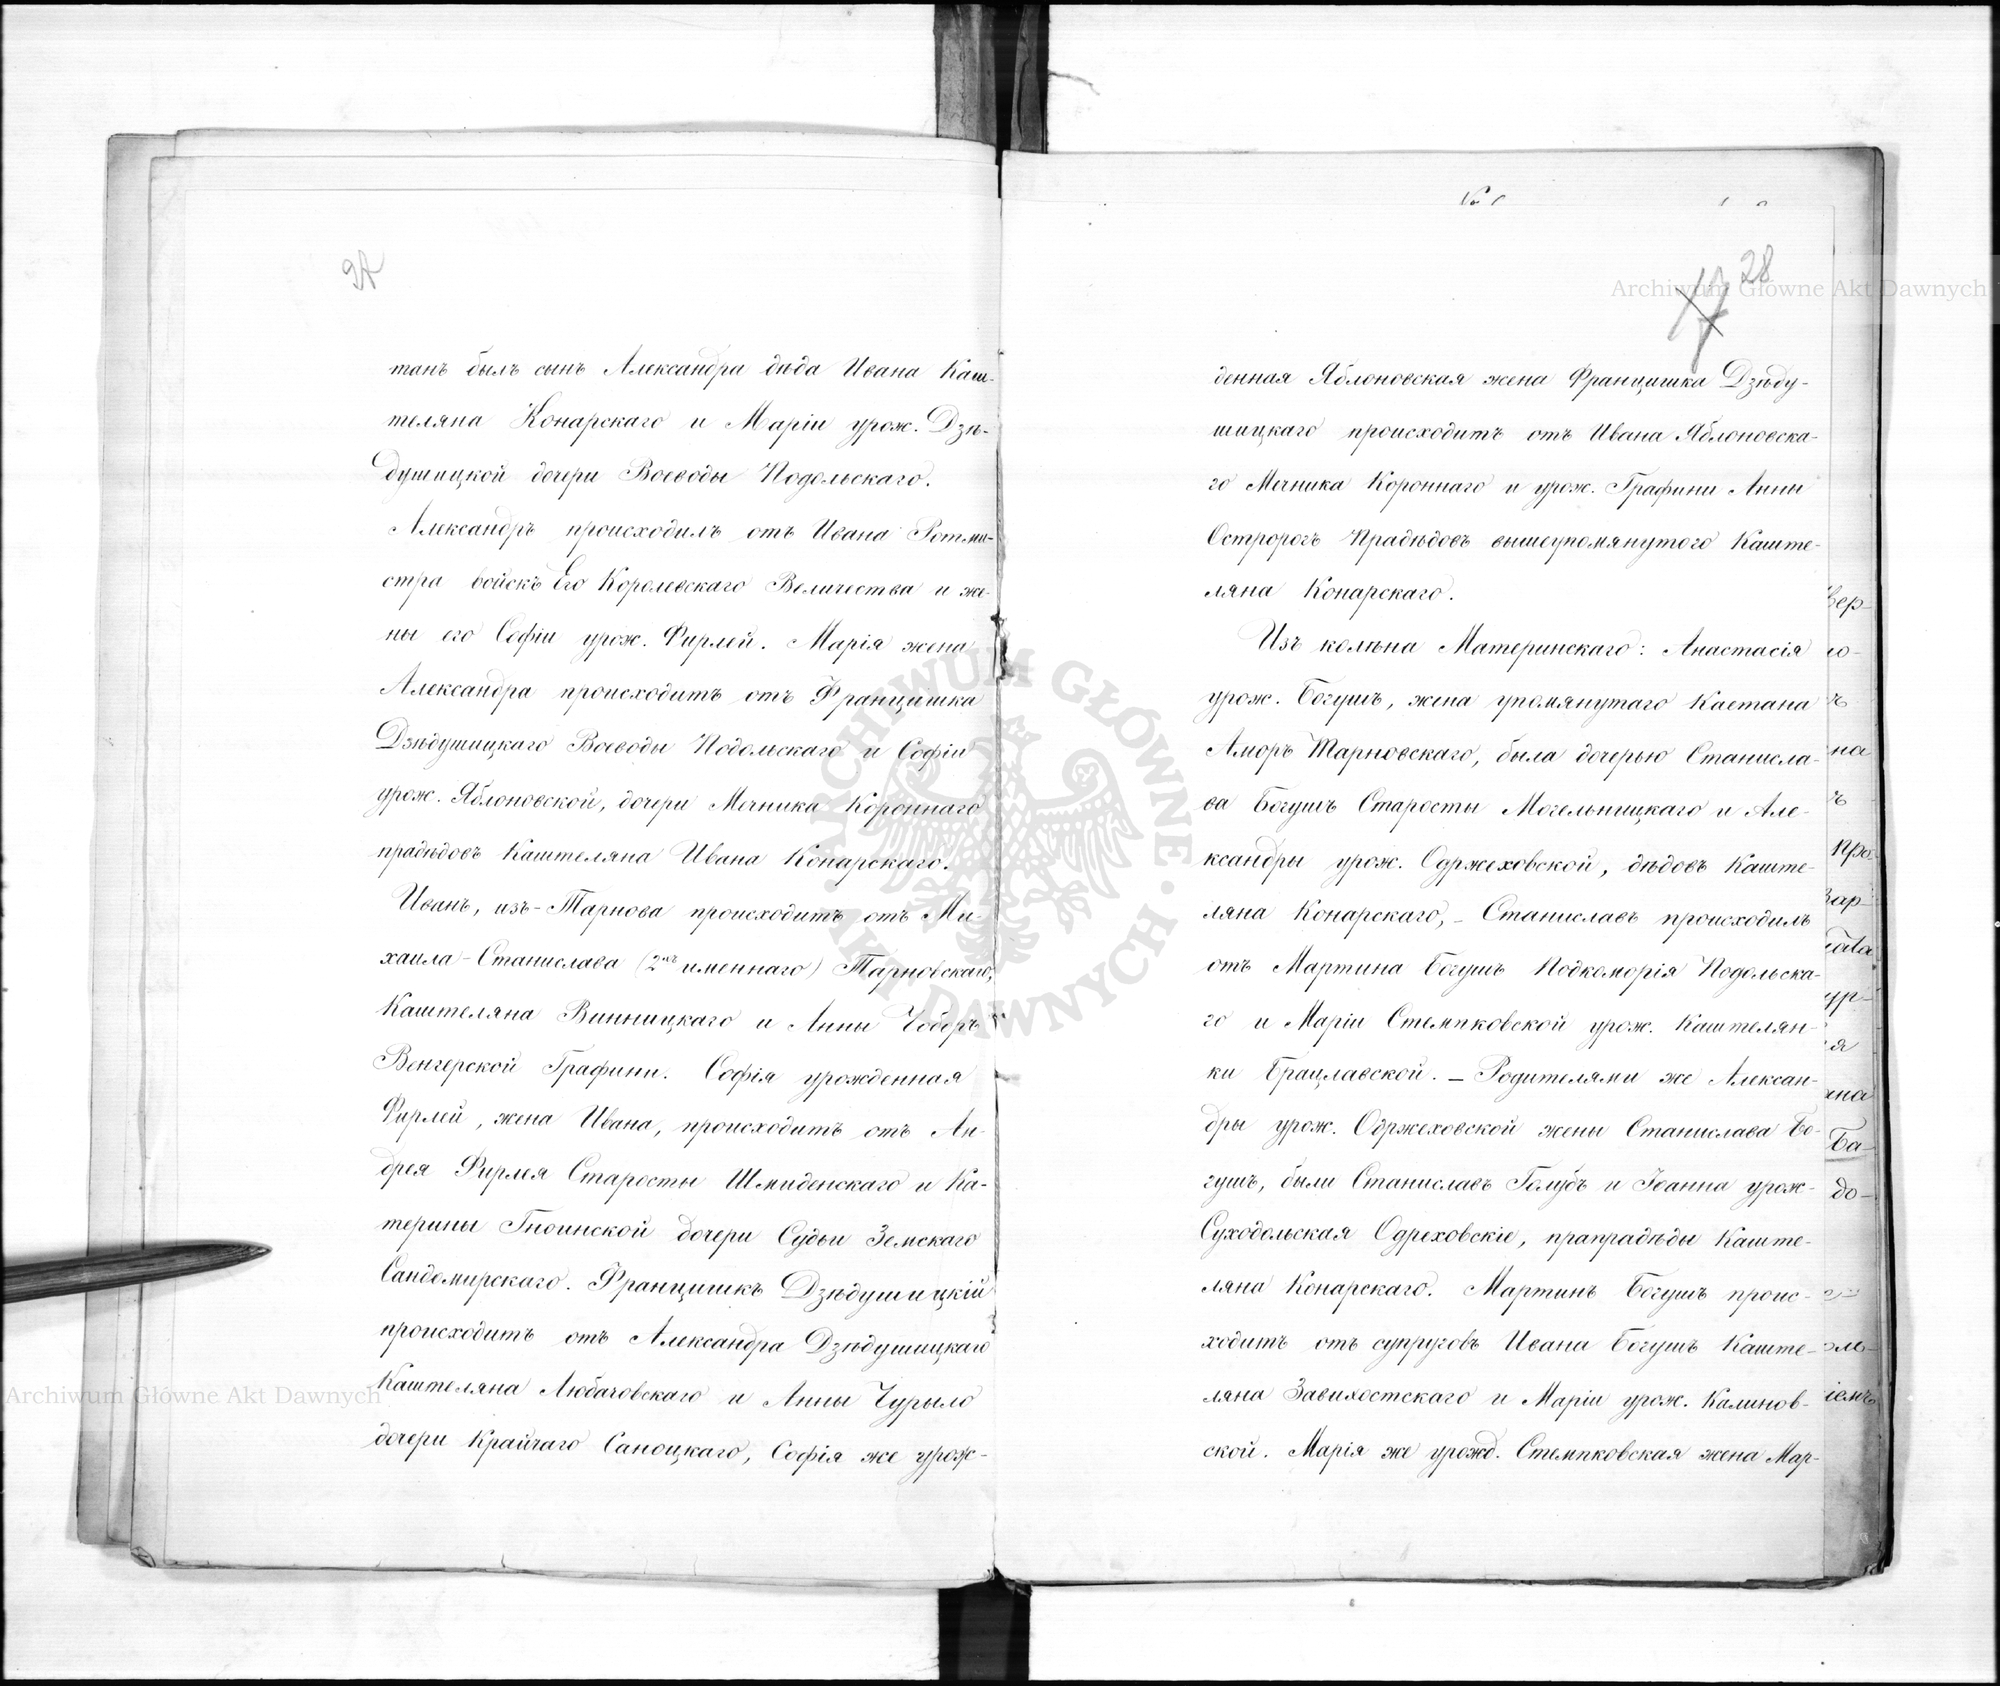 танъ былъ сынъ Александра дѣда Ивана Каш-
теляна Конарскаго и Маріи урож. Дзѣ-
душицкой дочери Воеводы Подольскаго.
Александръ происходилъ отъ Ивана Ротми-
стра войскъ Его Королевскаго Величества и же-
ны его Софіи урож. Фирлей. Марія жена
Александра происходитъ отъ Францишка
Дзѣдушицкаго Воеводы Подольскаго и Софіи
урож. Яблоновской, дочери Мечника Короннаго
прадѣдовъ Каштеляна Ивана Конарскаго.
Иванъ, изъ-Тарнова происходитъ отъ Ми-
хаила-Станислава (2хъ именнаго) Тарновскаго,
Каштеляна Винницкаго и Анны Чоборъ
Венгерской Графини. Софія урожденная
Фирлей, жена Ивана, происходитъ отъ Ан-
дрея Фирлея Старосты Шмиденскаго и Ка-
терины Гноинской дочери Судьи Земскаго
Сандомирскаго. Францишкъ Дзѣдушицкій
происходитъ отъ Александра Дзѣдушицкаго
Каштеляна Любачовскаго и Анны Чурыло
дочери Крайчаго Саноцкаго, Софія же урож-
28
17
денная Яблоновская жена Францишка Дзѣду-
шицкаго происходитъ отъ Ивана Яблоновска-
го Мечника Короннаго и урож. Графини Анны
Остророгъ Прадѣдовъ вышеупомянутого Каште-
ляна Конарскаго.
Изъ колѣна Материнскаго: Анастасія
урож. Богушъ, жена упомянутаго Каетана
Аморъ Тарновскаго, была дочерью Станисла-
ва Богушъ Старосты Могельницкаго и Але-
ксандры урож. Одржеховской, дѣдовъ Каште-
ляна Конарскаго, – Станиславъ происходилъ
отъ Мартина Богушъ Подкоморія Подольска-
го и Маріи Стемпковской урож. Каштелян-
ки Брацлавской. – Родителями же Алексан-
дры урож. Одржеховской жены Станислава Бо-
гушъ, были Станиславъ Голубъ и Іоанна урож-
Суходольская Одреховскіе, прапрадѣды Каште-
ляна Конарскаго. Мартинъ Богушъ проис-
ходитъ отъ супруговъ Ивана Богушъ Каште-
ляна Завихостскаго и Маріи урож. Калинов-
ской. Марія же урожд. Стемпковская жена Мар-
Archiwum Główne Akt Dawnych
Archiwum Główne Akt Dawnych
ARCHIWUM GŁÓWNE AKT DAWNYCH